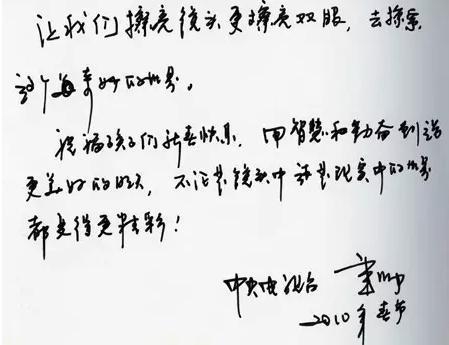 让我们擦亮镜头更擦亮双眼，去探索
这个美妙的世界。
祝福孩子们新春快乐，用智慧和勤奋创造
更美好的明天，不论是镜头中还是现实中的世界
都变得更精彩！
中央电视台
2010年春节